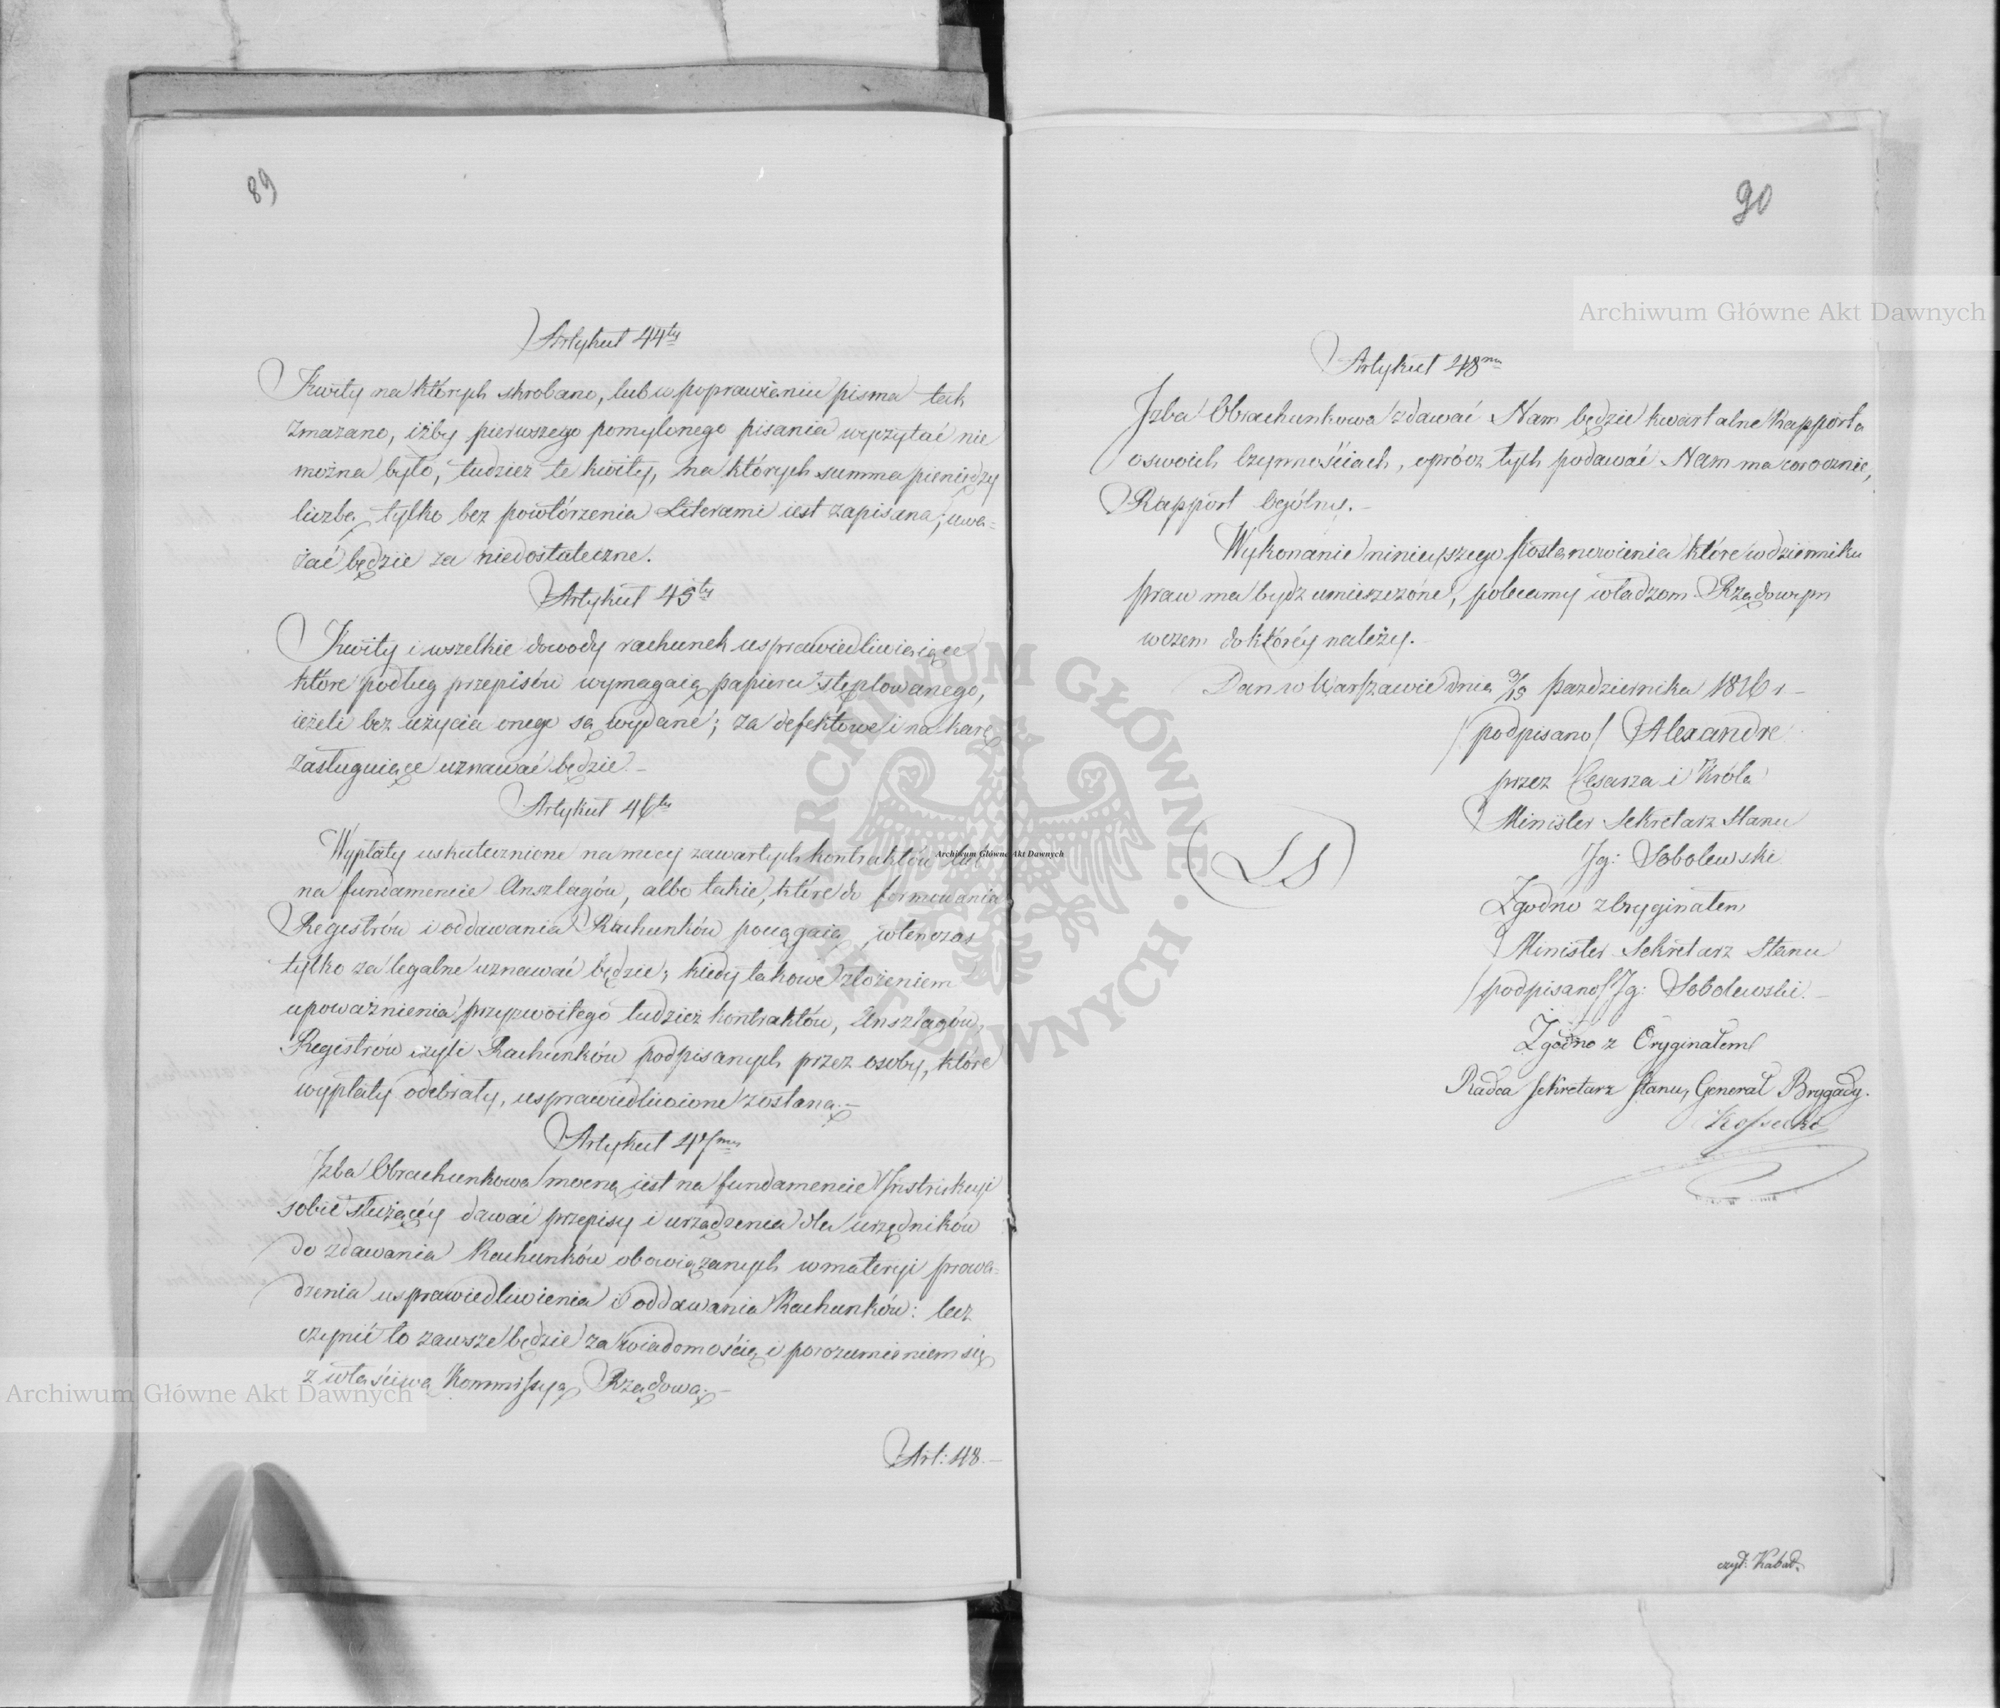 89
Artykuł 44ty
Kwity na których skrobano, lub w poprawieniu pisma tak
zmazano, iżby pierwszego pomylonego pisania wyczytać nie
można było, tudzież te kwity, na których summa pieniędzy
liczbą tylko bez powtórzenia Literami iest zapisana; uwa=
żać będzie za niedostateczne.
Artykuł 45ty
Kwity i wszelkie dowody rachunek usprawiedliwiaiące
które podług przepisów wymagaią papieru stęplowanego,
ieżeli bez użycia onego są wydane; za defektowe i na karę
zasługuiące uznawać będzie.–
Artykuł 46ty
Wypłaty uskutecznione na mocy zawartych kontraktów lub
na fundamencie Anszlagów, albo takie, które do formowania
Registrów i oddawania Rachunków pociągaią, wtenczas
tylko za legalne uznawać będzie, kiedy takowe złożeniem
upoważnienia przyzwoitego tudzież kontraktów, Anszlagów,
Registrów czyli Rachunków podpisanych przez osoby, które
wypłaty odebrały, usprawiedliwione zostaną.–
Artykuł 47my
Izba Obrachunkowa mocną iest na fundamencie Instrukcyi
sobie służącéy dawać przepisy i urządzenia dla urzędników
do zdawania Rachunków obowiązanych w materyi prowa-
dzenia usprawiedliwienia i oddawania Rachunków: lecz
czynić to zawsze będzie za wiadomością i porozumieniem się
z właściwą Kommissyą Rządową.–
Art: 48.–
90
Artykuł 48my
Izba Obrachunkowa zdawać Nam będzie kwartalne Rapporta
o swoich Czynnościach, oprócz tych podawać Nam ma corocznie,
Rapport Ogólny.–
Wykonanie ninieyszego Postanowienia które w dzienniku
praw ma bydz umieszczone, polecamy władzom Rządowym
w czem do któréy należy.
Dan w Warszawie dnia 3/15 Października 1816 r–
/podpisano/ Alexandre
przez Cesarza i Króla
Minister Sekretarz Stanu
Ig: Sobolewski
LS
Zgodno z Oryginałem
Minister Sekretarz Stanu
/podpisano/ Ig: Sobolewski.–
Zgodno z Oryginałem
Radca Sekretarz Stanu, Generał Brygady.
Kossecki
czyt: Kabat.
Archiwum Główne Akt Dawnych
Archiwum Główne Akt Dawnych
Archiwum Główne Akt Dawnych
ARCHIWUM GŁÓWNE AKT DAWNYCH